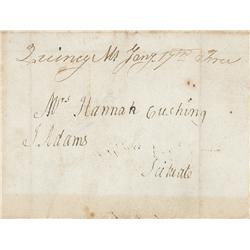 Quincy Ms Jany 17th Free
Mrs Hannah Cushing
J Adams
Scituate